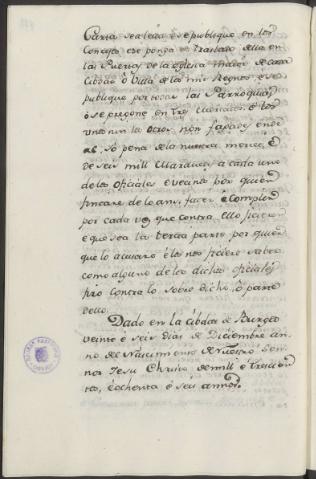 Carta sea leida è se publique en los
Concejos è se ponga el traslado della en
las Puertas de la Iglesia maior de cada
Cibdad ò Villa de los mis Regnos, è se
publique por todas las Parroquias
è se pregone en tres mercados. E los
unos nin los otros non fagades ende
al, so pena de la nuestra merced è
de seis mill Maravedis à cada uno
de los oficiales è vecinos por quien
fincare de lo ansi facer è complir
por cada vez que contra ello ficieren
è que sea la tercia parte por quien
que lo acusare è lo nos ficiere saber
como alguno de los dichos oficiales
fizo contra lo sobre dicho, ò parte
dello.
Dado en la cibdat de Burgos
veinte è seis dias de Diciembre an-
no del Nascimiento de Nuestro Sen-
nor Jesu Christo de mill è trecien-
tos, è ochenta è seis annos.